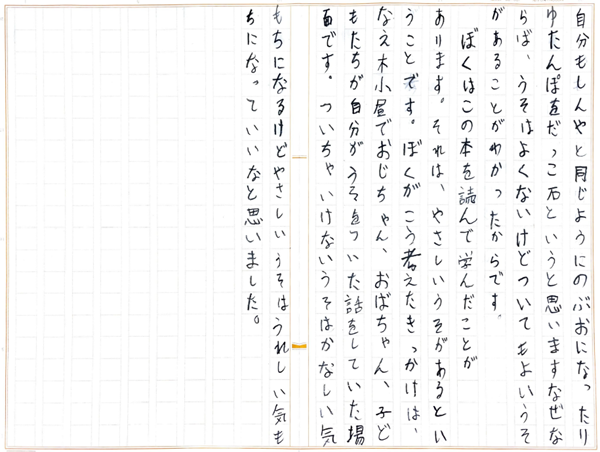 自分もしんやと同じようにのぶおになったり
ゆたんぽをだっこ石というと思いますなぜな
らば、うそはよくないけどついてもよいうそ
があることがわかったからです。
ぼくはこの本を読んで学んだことが
あります。それは、やさしいうそがあるとい
うことです。ぼくがこう考えたきっかけは、
なえ木小屋でおじちゃん、おばちゃん、子ど
もたちが自分がうそをついた話をしていた場
面です。ついちゃいけないうそはかなしい気
もちになるけどやさしいうそはうれしい気も
ちになっていいなと思いました。